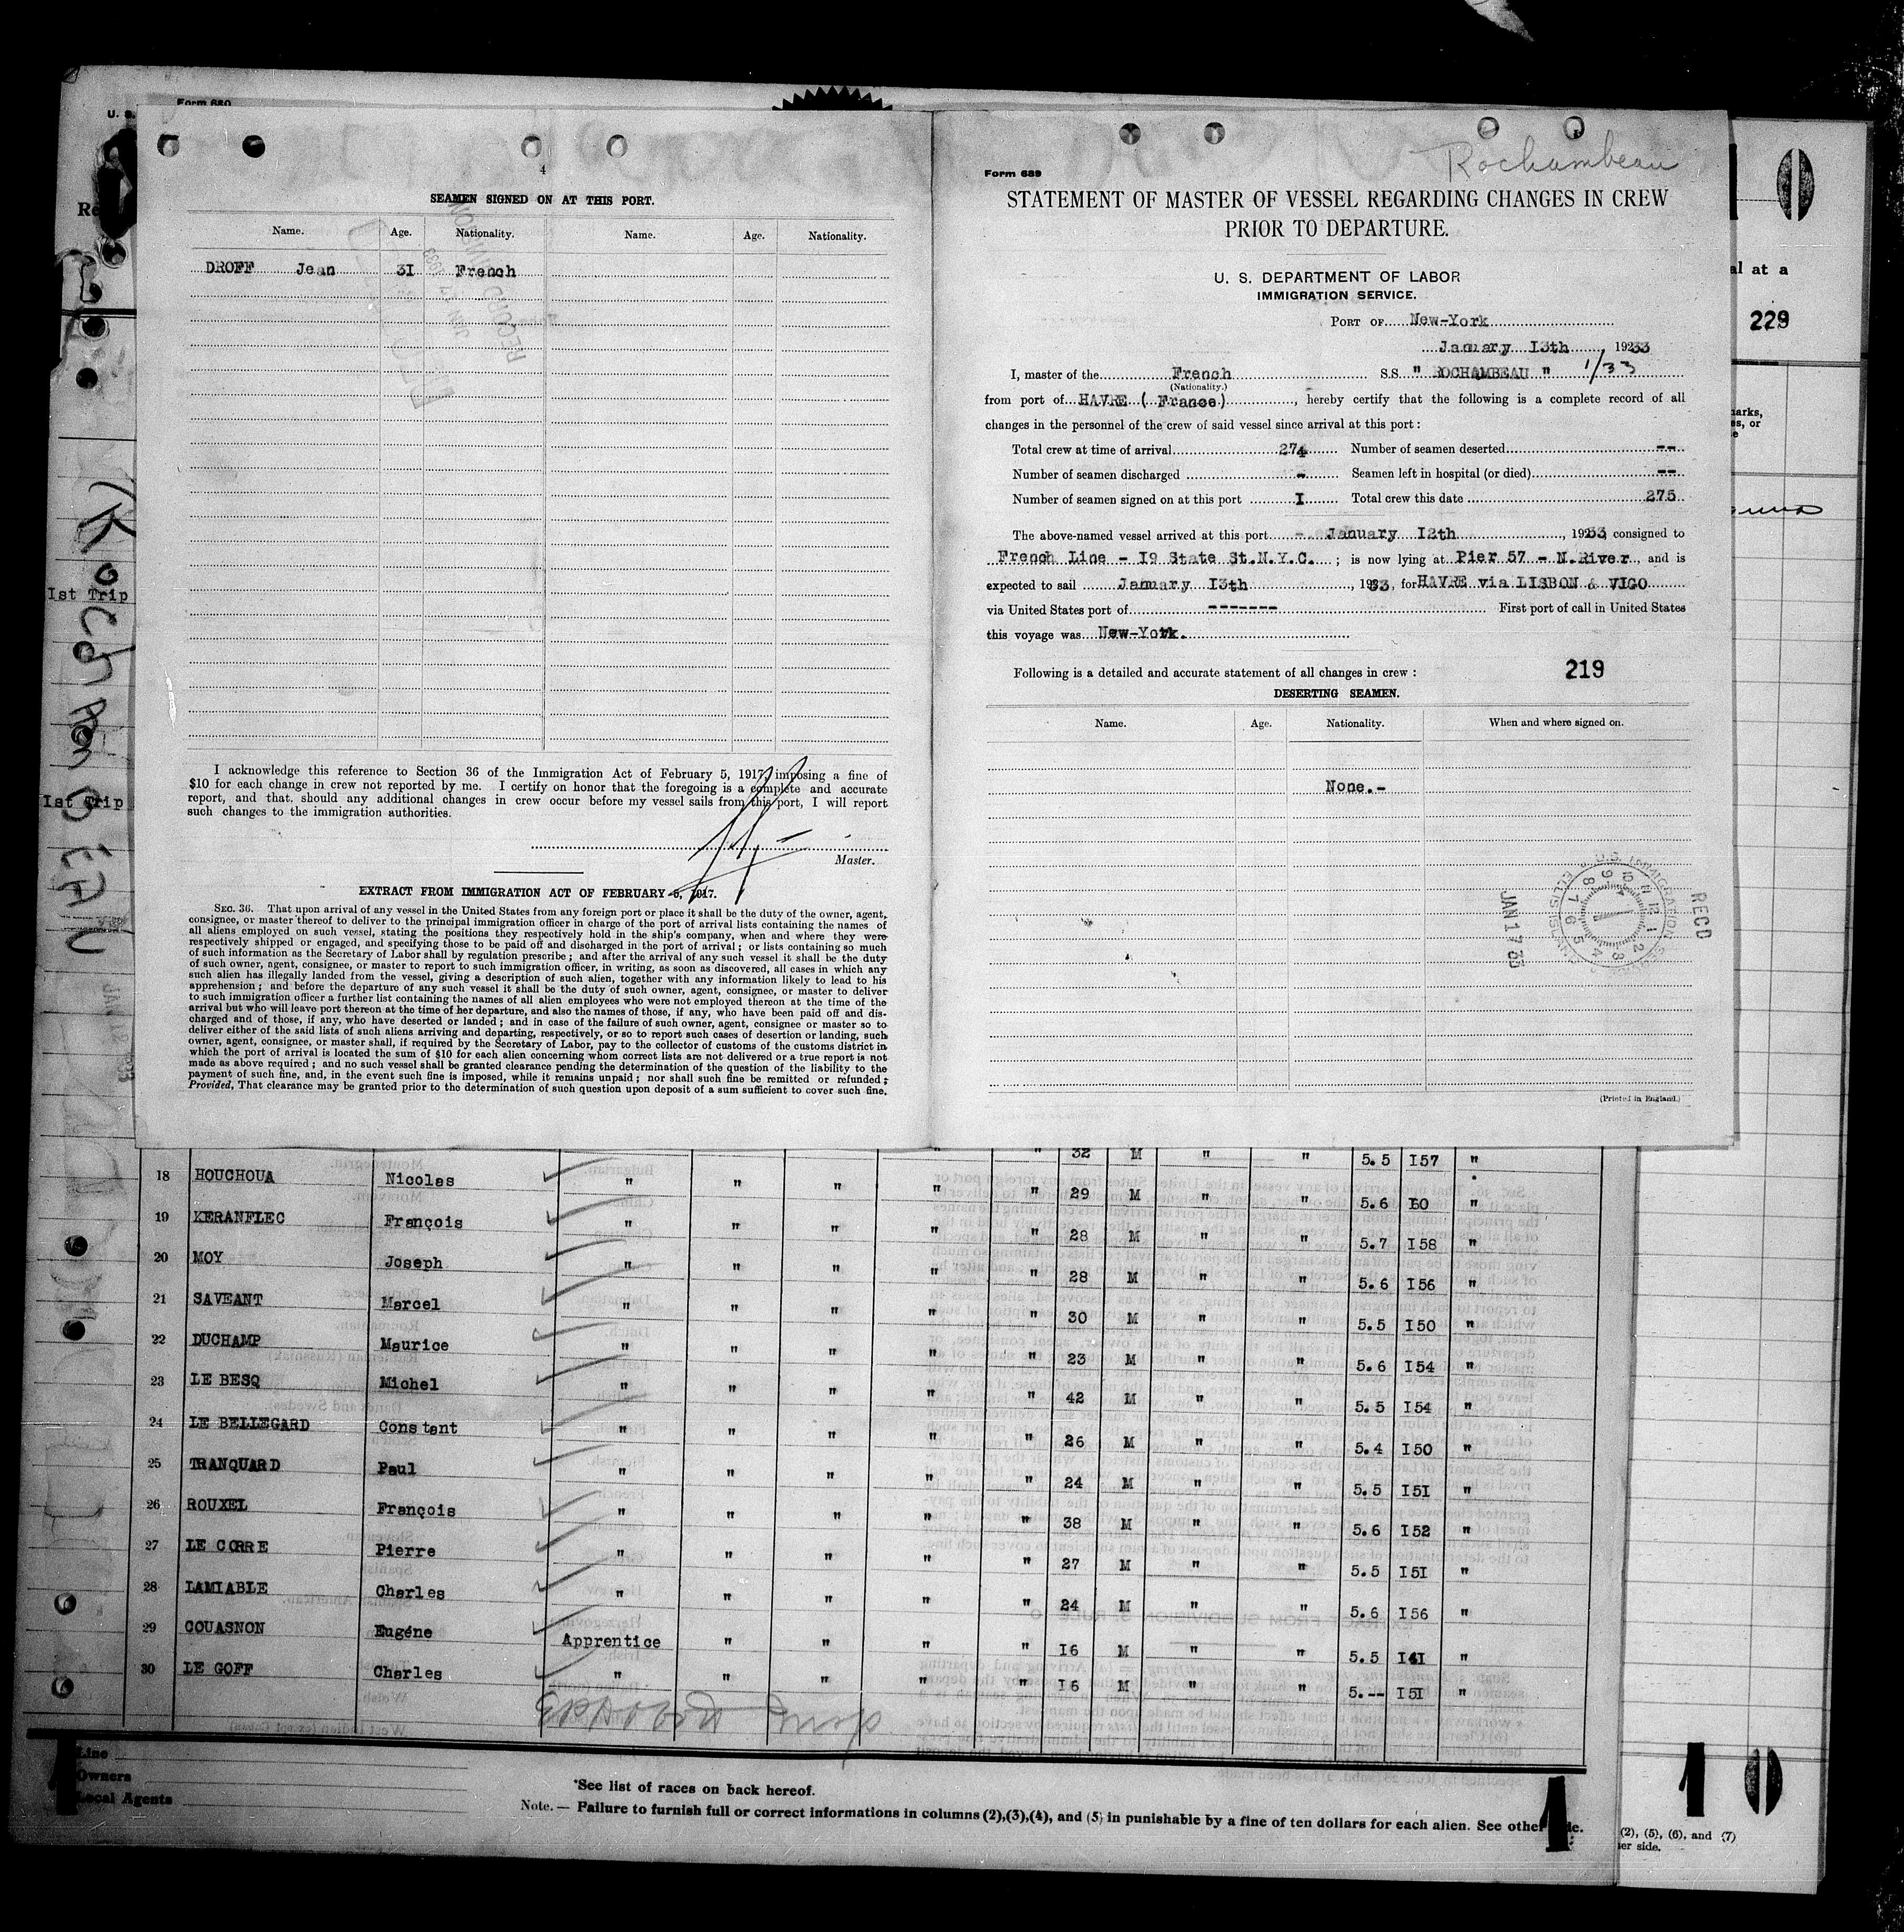 Form 680
U. S.
4
SEAMEN SIGNED ON AT THIS PORT.
Name. Age. Nationality. Name. Age. Nationality.
DROFF Jean 31 French
I acknowledge this reference to Section 36 of the Immigration Act of February 5, 1917, imposing a fine of
$10 for each change in crew not reported by me. I certify on honor that the foregoing is a complete and accurate
report, and that, should any additional changes in crew occur before my vessel sails from this port, I will report
such changes to the immigration authorities.
Master.
EXTRACT FROM IMMIGRATION ACT OF FEBRUARY 5, 1917.
SEC. 36. That upon arrival of any vessel in the United States from any foreign port or place it shall be the duty of the owner, agent,
consignee, or master thereof to deliver to the principal immigration officer in charge of the port of arrival lists containing the names of
all aliens employed on such vessel, stating the positions they respectively hold in the ship's company, when and where they were
respectively shipped or engaged, and specifying those to be paid off and discharged in the port of arrival; or lists containing so much
of such information as the Secretary of Labor shall by regulation prescribe; and after the arrival of any such vessel it shall be the duty
of such owner, agent, consignee, or master to report to such immigration officer, in writing, as soon as discovered, all cases in which any
such alien has illegally landed from the vessel, giving a description of such alien, together with any information likely to lead to his
apprehension; and before the departure of any such vessel it shall be the duty of such owner, agent, consignee, or master to deliver
to such immigration officer a further list containing the names of all alien employees who were not employed thereon at the time of the
arrival but who will leave port thereon at the time of her departure, and also the names of those, if any, who have been paid off and dis-
charged and of those, if any, who have deserted or landed; and in case of the failure of such owner, agent, consignee or master so to
deliver either of the said lists of such aliens arriving and departing, respectively, or so to report such cases of desertion or landing, such
owner, agent, consignee, or master shall, if required by the Secretary of Labor, pay to the collector of customs of the customs district in
which the port of arrival is located the sum of $10 for each alien concerning whom correct lists are not delivered or a true report is not
made as above required; and no such vessel shall be granted clearance pending the determination of the question of the liability to the
payment of such fine, and, in the event such fine is imposed, while it remains unpaid; nor shall such fine be remitted or refunded;
Provided, That clearance may be granted prior to the determination of such question upon deposit of a sum sufficient to cover such fine.
Rochambeau
Form 689
STATEMENT OF MASTER OF VESSEL REGARDING CHANGES IN CREW
PRIOR TO DEPARTURE.
U. S. DEPARTMENT OF LABOR
IMMIGRATION SERVICE.
PORT OF New-York
January 13th, 1933
I, master of the French S.S. " ROCHAMBEAU " 1/33
(Nationality.)
from port of HAVRE ( France), hereby certify that the following is a complete record of all
changes in the personnel of the crew of said vessel since arrival at this port:
Total crew at time of arrival 274 Number of seamen deserted --
Number of seamen discharged - Seamen left in hospital (or died) --
Number of seamen signed on at this port I Total crew this date 275
The above-named vessel arrived at this port - January 12th, 1933, consigned to
French Line - 19 State St.N.Y.C. ; is now lying at Pier 57 - N.River, and is
expected to sail January 13th, 1933, for HAVRE via LISBON & VIGO
via United States port of ------- First port of call in United States
this voyage was New-York.
Following is a detailed and accurate statement of all changes in crew: 219
DESERTING SEAMEN.
Name. Age. Nationality. When and where signed on.
None.-
RECD
U.S. IMMIGRATION
JAN 1
(Printed in England.)
al at a
229
1st Trip
1st Trip
ROCHAMBEAU
32 M " " 5.5 157 "
18 HOUCHOUA Nicolas " " " " " 29 M " " 5.6 "
19 KERANFLEC François " " " " " 28 M " " 5.7 158 "
20 MOY Joseph " " " " " 28 M " " 5.6 156 "
21 SAVEANT Marcel " " " " " 30 M " " 5.5 150 "
22 DUCHAMP Maurice " " " " " 23 M " " 5.6 154 "
23 LE BESQ Michel " " " " " 42 M " " 5.5 154 "
24 LE BELLEGARD Constant " " " " " 26 M " " 5.4 150 "
25 TRANQUARD Paul " " " " " 24 M " " 5.5 151 "
26 ROUXEL François " " " " " 38 M " " 5.6 152 "
27 LE CORRE Pierre " " " " " 27 M " " 5.5 151 "
28 LAMIABLE Charles " " " " " 24 M " " 5.6 156 "
29 COUASNON Eugéne Apprentice " " " " 16 M " " 5.5 141 "
30 LE GOFF Charles " " " " " 16 M " " 5.-- 151 "
Line
Owners
Local Agents
*See list of races on back hereof.
Note.— Failure to furnish full or correct informations in columns (2),(3),(4), and (5) in punishable by a fine of ten dollars for each alien. See other side.
1
1
1
(2), (5), (6), and (7)
er side.